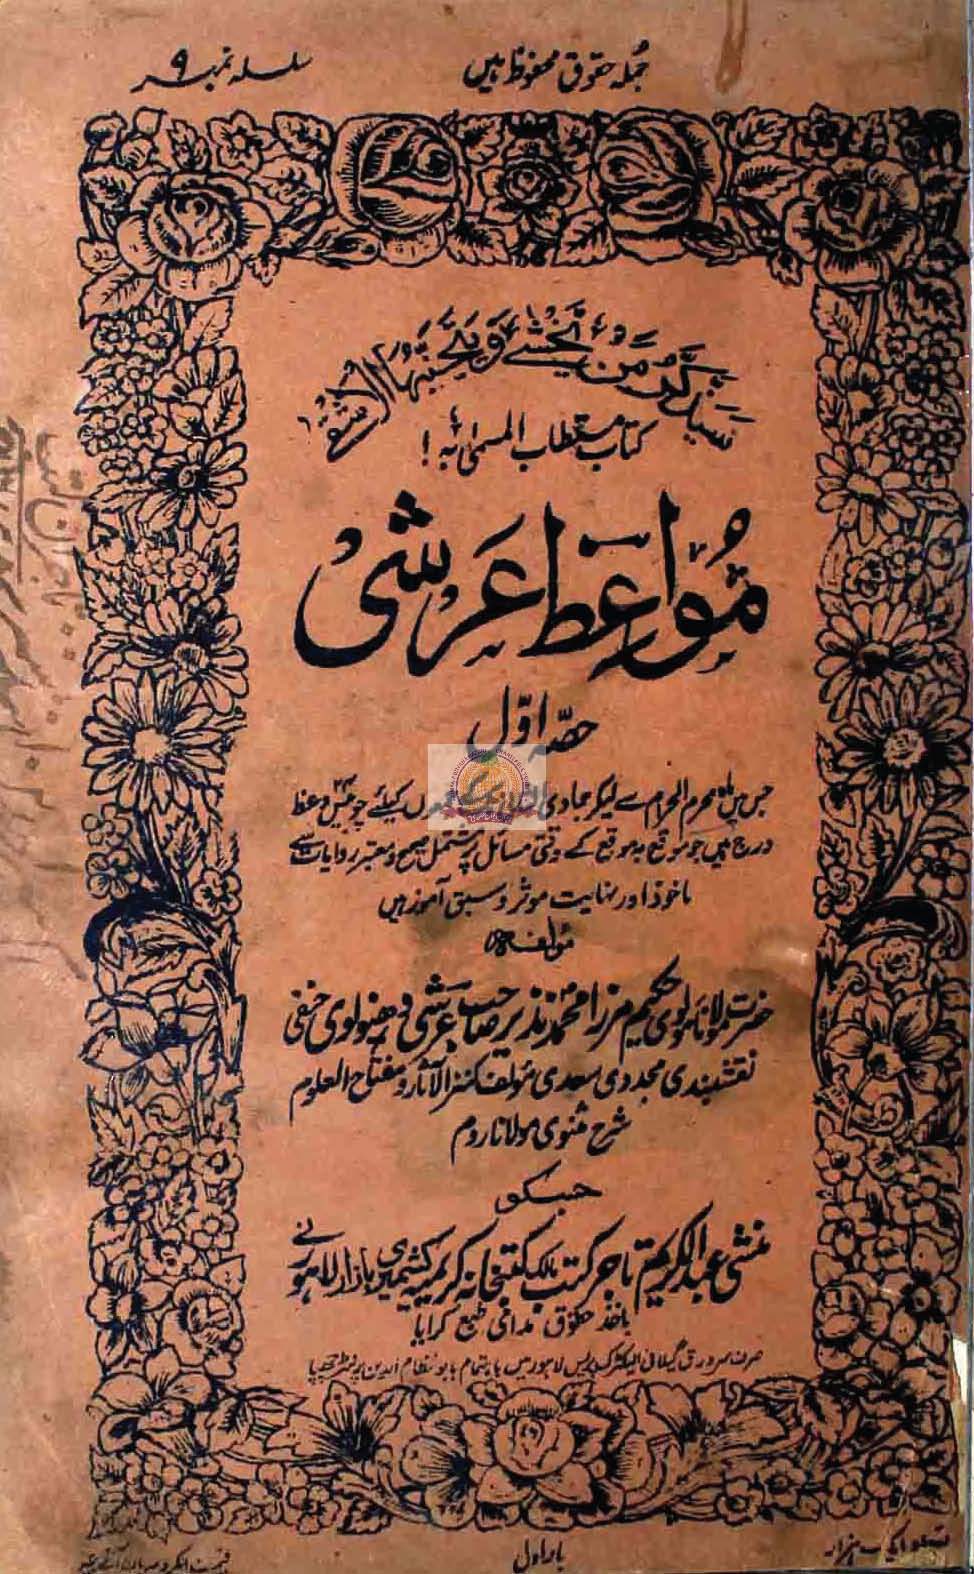 جملہ حقوق محفوظ ہیں
سلسلہ نمبر ۹
سَيَذَّكَّرُ مَنْ يَّخْشٰى وَيَتَجَنَّبُهَا الْاَشْقَى
کتاب مستطاب المسمیٰ بہ !
مواعظ عرشی
حصہ اوّل
جس میں ماہ محرم الحرام سے لیکر جمادی کیلئے چوبیس ۲۴ وعظ
درج ہیں جو موقع بہ موقع کے وقتی مسائل پر مشتمل صحیح و معتبر روایات سے
ماخوذ اور نہایت موثر و سبق آموز ہیں
مؤلفہ
حضرت مولانا مولوی حکیم مرزا محمد نذیر صاحب عرشی دھنولوی حنفی
نقشبندی مجددی سعدی مؤلف کنز الآثار و مفتاح العلوم
شرح مثنوی مولانا روم
جسکو
منشی عبد الکریم تاجر کتب مالک کتبخانہ کریمیہ کشمیری بازار لاہور نے
باخذ حقوق دائمی طبع کرایا
صرف سرورق گیلانی الیکٹرک پریس لاہور میں باہتمام بابو نظام الدین پرنٹر چھپا
تعداد ایک ہزار
بار اول
قیمت